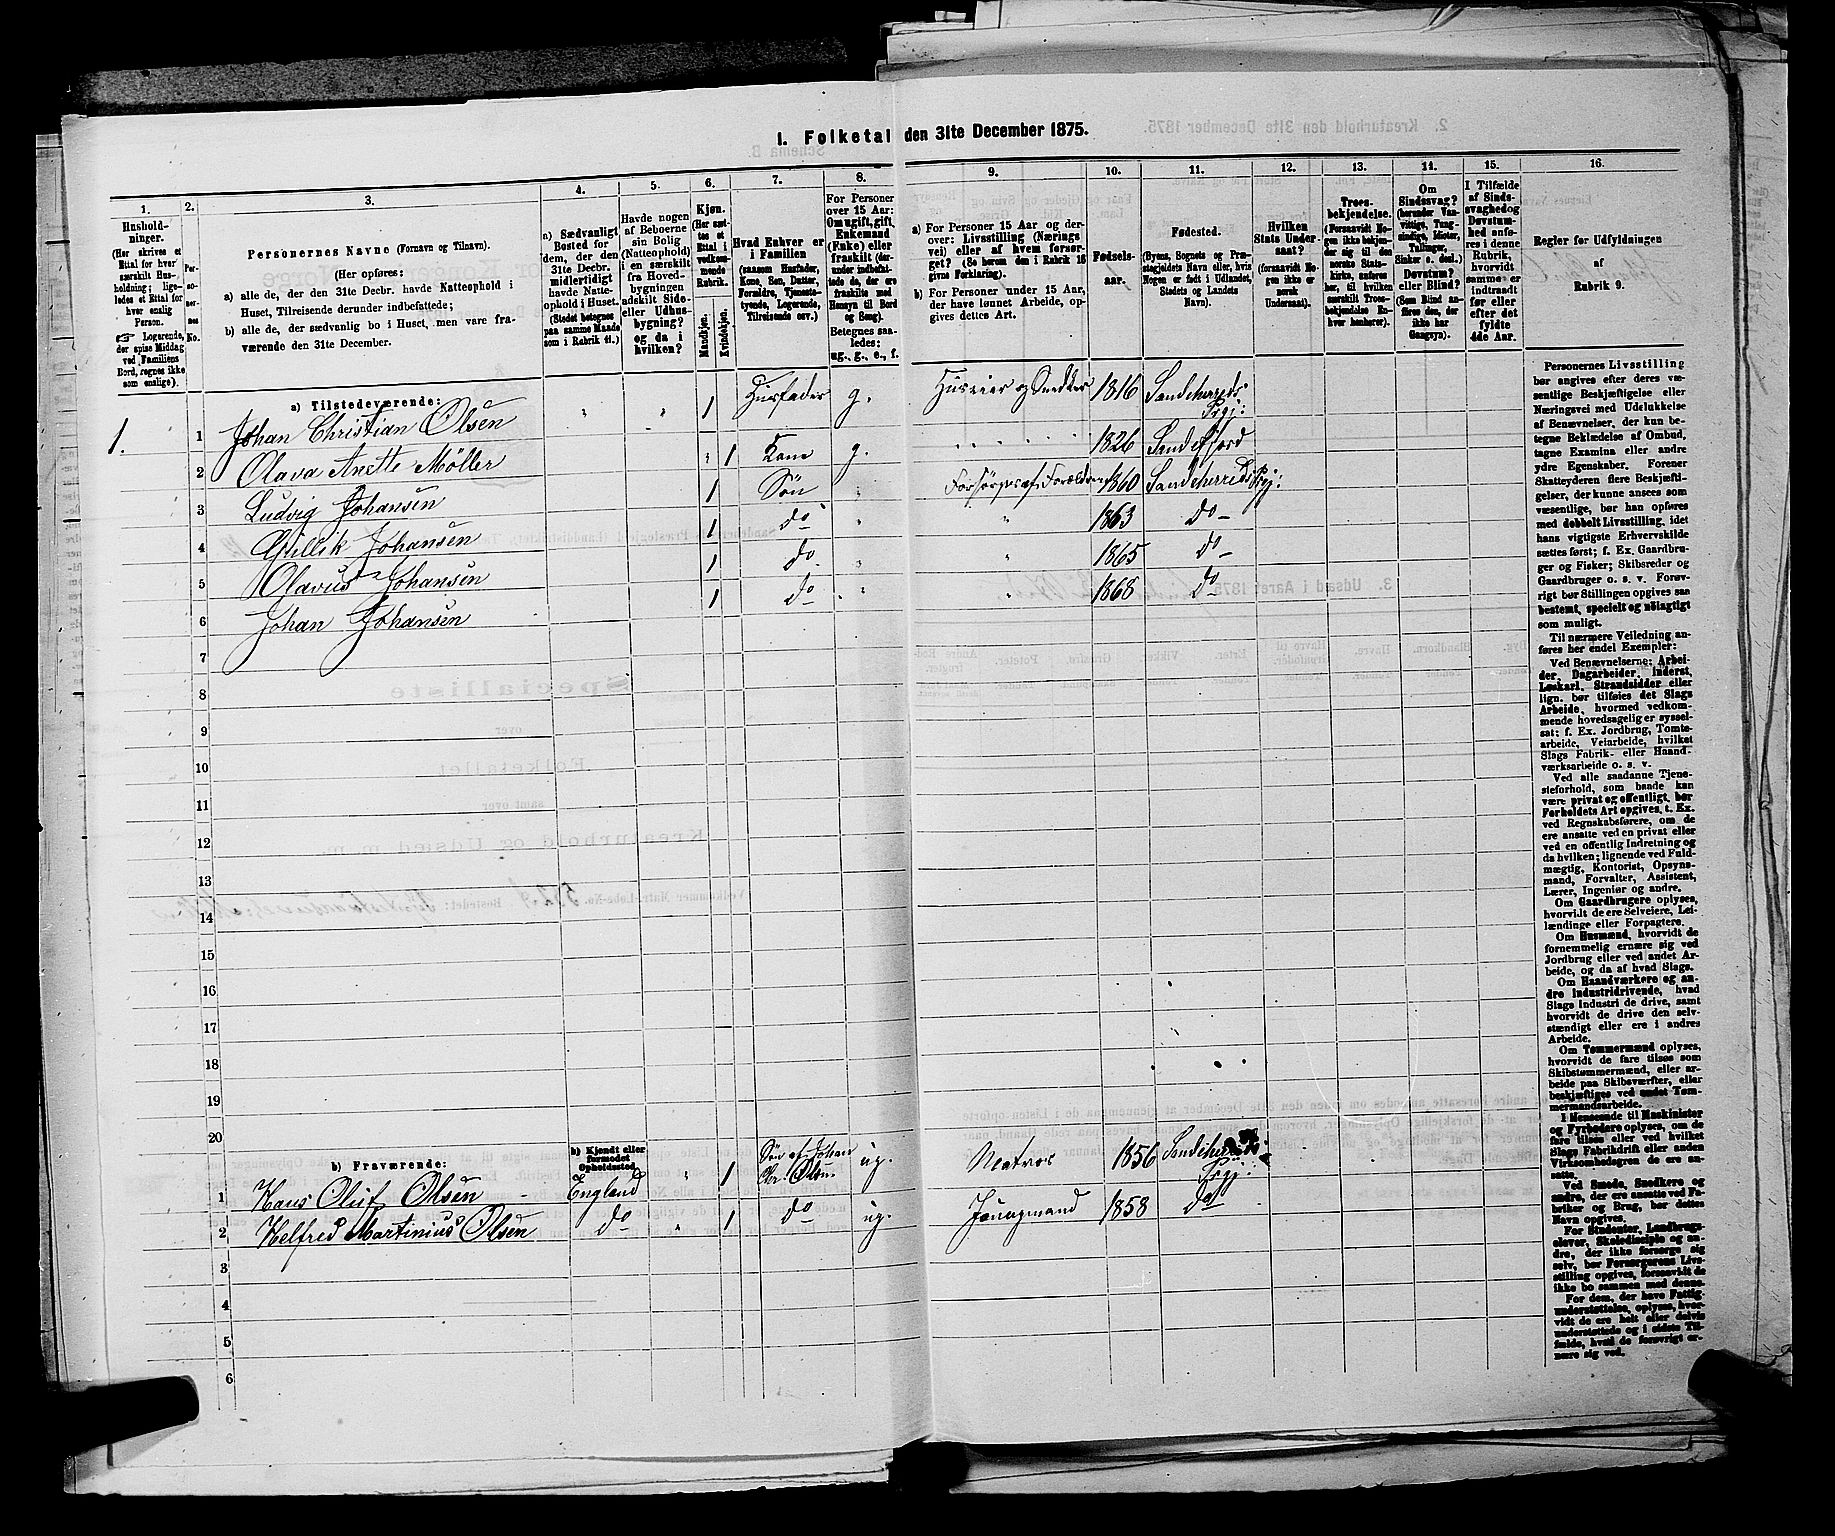 1. Folketal den 31te December 1875.
1.
Hushold-
ninger.
(Her skrives et
Ettal for hver
særskilt Hus-
holdning; lige-
ledes et Ettal for
hver enslig
Person.
Logerende,
der spise Middag
ved Familiens
Bord, regnes ikke
som enslige).
2.
Per-
so-
ner-
nes
No.
3.
Personernes Navne (Fornavn og Tilnavn).
(Her opføres:
a) alle de, der den 31te Decbr. havde Natteophold i
Huset, Tilreisende derunder indbefattede;
b) alle de, der sædvanlig bo i Huset, men vare fra-
værende den 31te December.
4.
a) Sædvanligt
Bosted for
dem, der den
31te Decbr.
midlertidigt
havde Natte-
ophold i Huset.
(Stedet betegnes
paa samme Maade
som i Rubrik 11.)
5.
Havde nogen
af Beboerne
sin Bolig
(Natteophold)
i en særskilt
fra Hoved-
bygningen
adskilt Side-
eller Udhus-
bygning?
og da i
hvilken?
6.
Kjøn.
(Her sæt-
tes et
Ettal i
vedkom-
mende
Rubrik.
Mandkjøn.
Kvindekjøn.
7.
Hvad Enhver er
i Familien
(saasom Husfader,
Kone, Søn, Datter,
Forældre, Tjeneste-
tyende, Logerende,
Tilreisende osv.)
8.
For Personer
over 15 Aar:
Om ugift, gift,
Enkemand
(Enke) eller
fraskilt (der-
under indbefat-
tede de, der ere
fraskilte med
Hensyn til Bord
og Seng).
Betegnes saa-
ledes:
ug., g., e., f.
9.
a) For Personer 15 Aar og der-
over: Livsstilling (Nærings-
vei) eller af hvem forsør-
get? (Se herom den i Rubrik 16
givne Forklaring).
b) For Personer under 15 Aar,
der have lønnet Arbeide, op-
gives dettes Art.
10.
Fødsels-
aar.
11.
Fødested.
(Byens, Sognets og Præ-
stegjeldets Navn eller, hvis
Nogen er født i Udlandet,
Stedets og Landets
Navn).
12.
Hvilken
Stats Under-
saat?
(forsaavidt No-
gen ikke er
norsk
Undersaat).
13.
Troes-
bekjendelse.
(Forsaavidt No-
gen ikke bekjen-
der sig til den
norske Stats-
kirke, anføres
her, til hvilken
særskilt Troes-
bekjendelse En-
hver henhører).
14.
Om
Sindssvag?
(herunder Van-
vittige, Tung-
sindige, Idioter,
Tullinger,
Sinker o. desl.)
Døvstum?
eller Blind?
(Som Blind an-
føres den, der
ikke har
Gangsyn).
15.
I Tilfælde
af Sinds-
svaghed og
Døvstum-
hed anfø-
res i denne
Rubrik,
hvorvidt
samme er
indtraadt
før eller
efter det
fyldte
4de Aar.
16.
Regler for Udfyldningen
af
Rubrik 9.
a) Tilstedeværende:
1. 1 Johan Christian Olsen 1 Husfader g. Huseier og Snedker 1816 Sandeherreds Prgj:
2 Olava Anette Möller 1 Kone g. 1826 Sandefjord
3 Ludvig Johansen 1 Sön Forsörges af Forældrene 1860 Sandeherreds Prgj:
4 Gullik Johansen 1 do 1863 do
5 Olavus Johansen 1 do 1865 do
6 Johan Johansen 1 do 1868 do
7
8
9
10
11
12
13
14
15
16
17
18
19
20
b) Fraværende:
b) Kjendt eller
formodet
Opholdssted.
1 Hans Oluf Olsen England 1 Sön af Johan Chr. Olsen ug. Matros 1856 Sandeherreds Prgj:
2 Helfred Martinius Olsen do 1 do ug. Jungmand 1858 do
3
4
5
6
Personernes Livsstilling
bør angives efter deres væ-
sentlige Beskjæftigelse eller
Næringsvei med Udelukkelse
af Benævnelser, der kun be-
tegne Beklædelse af Ombud,
tagne Examina eller andre
ydre Egenskaber. Forener
Skatteyderen flere Beskjæfti-
gelser, der kunne ansees som
væsentlige, bør han opføres
med dobbelt Livsstilling, idet
hans vigtigste Erhvervskilde
sættes først; f. Ex. Gaardbru-
ger og Fisker; Skibsreder og
Gaardbruger o. s. v. Forøv-
rigt bør Stillingen opgives saa
bestemt, specielt og nöiagtigt
som muligt.
Til nærmere Veiledning an-
føres her endel Exempler:
Ved Benævnelserne: Arbei-
der, Dagarbeider, Inderst,
Løskarl, Strandsidder eller
lign. bør tilføies det Slags
Arbeide, hvormed vedkom-
mende hovedsagelig er syssel-
sat; f. Ex. Jordbrug, Tomte-
arbeide, Veiarbeide, hvilket
Slags Fabrik- eller Haand-
værksarbeide o. s. v.
Ved alle saadanne Tjene-
steforhold, som baade kan
være privat og offentligt, bør
Forholdets Art opgives, t. Ex.
ved Regnskabsførere, om de
ere ansatte ved en privat eller
ved en offentlig Indretning og
da hvilken; lignende ved Fuld-
mægtig, Kontorist, Opsyns-
mand, Forvalter, Assistent,
Lærer, Ingeniør og andre.
Om Gaardbrugere oplyses,
hvorvidt de ere Selveiere, Lei-
lændinge eller Forpagtere.
Om Husmænd, hvorvidt de
fornemmelig ernære sig ved
Jordbrug eller ved andet Ar-
beide, og da af hvad Slags.
Om Haandværkere og an-
dre Industridrivende, hvad
Slags Industri de drive, samt
hvorvidt de drive den selv-
stændigt eller ere i andres
Arbeide.
Om Tømmermænd oplyses,
hvorvidt de fare tilsøs som
Skibstømmermænd, eller ar-
beide paa Skibsværfter, eller
beskjæftiges ved andet Tøm-
mermandsarbeide.
I Henseende til Maskinister
og Fyrbødere oplyses, om de
fare tilsøs eller ved hvilket
Slags Fabrikdrift eller anden
Virksomhedsgren de ere an-
satte.
Ved Smede, Snedkere og
andre, der ere ansatte ved Fa-
briker og Brug, bør dettes
Navn opgives.
For Studenter, Landbrugs-
elever, Skoledisciple og an-
dre, der ikke forsørge sig
selv, bør Forsørgerens Livs-
stilling opgives, forsaavidt de
ikke bo sammen med denne.
For dem, der have Fattig-
understøttelse, oplyses, hvor-
vidt de ere helt eller delvis
understøttede og i sidste Til-
fælde, hvad de forøvrigt er-
nære sig ved.